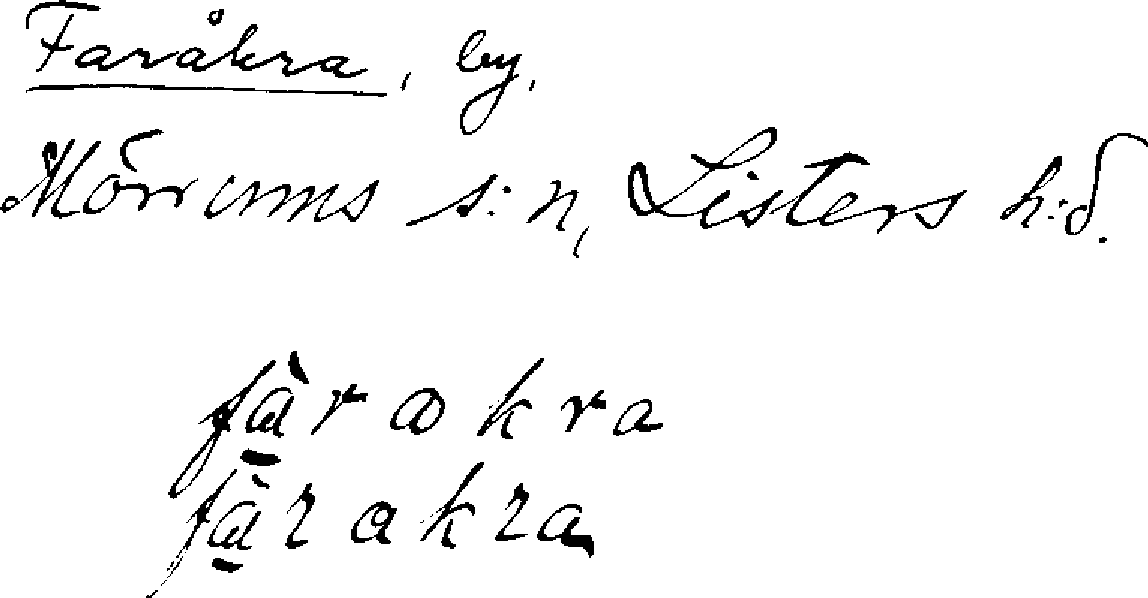 Faråkra, by.
Mörrums s:n, Listers h:d.
fàrakra
fàrakra